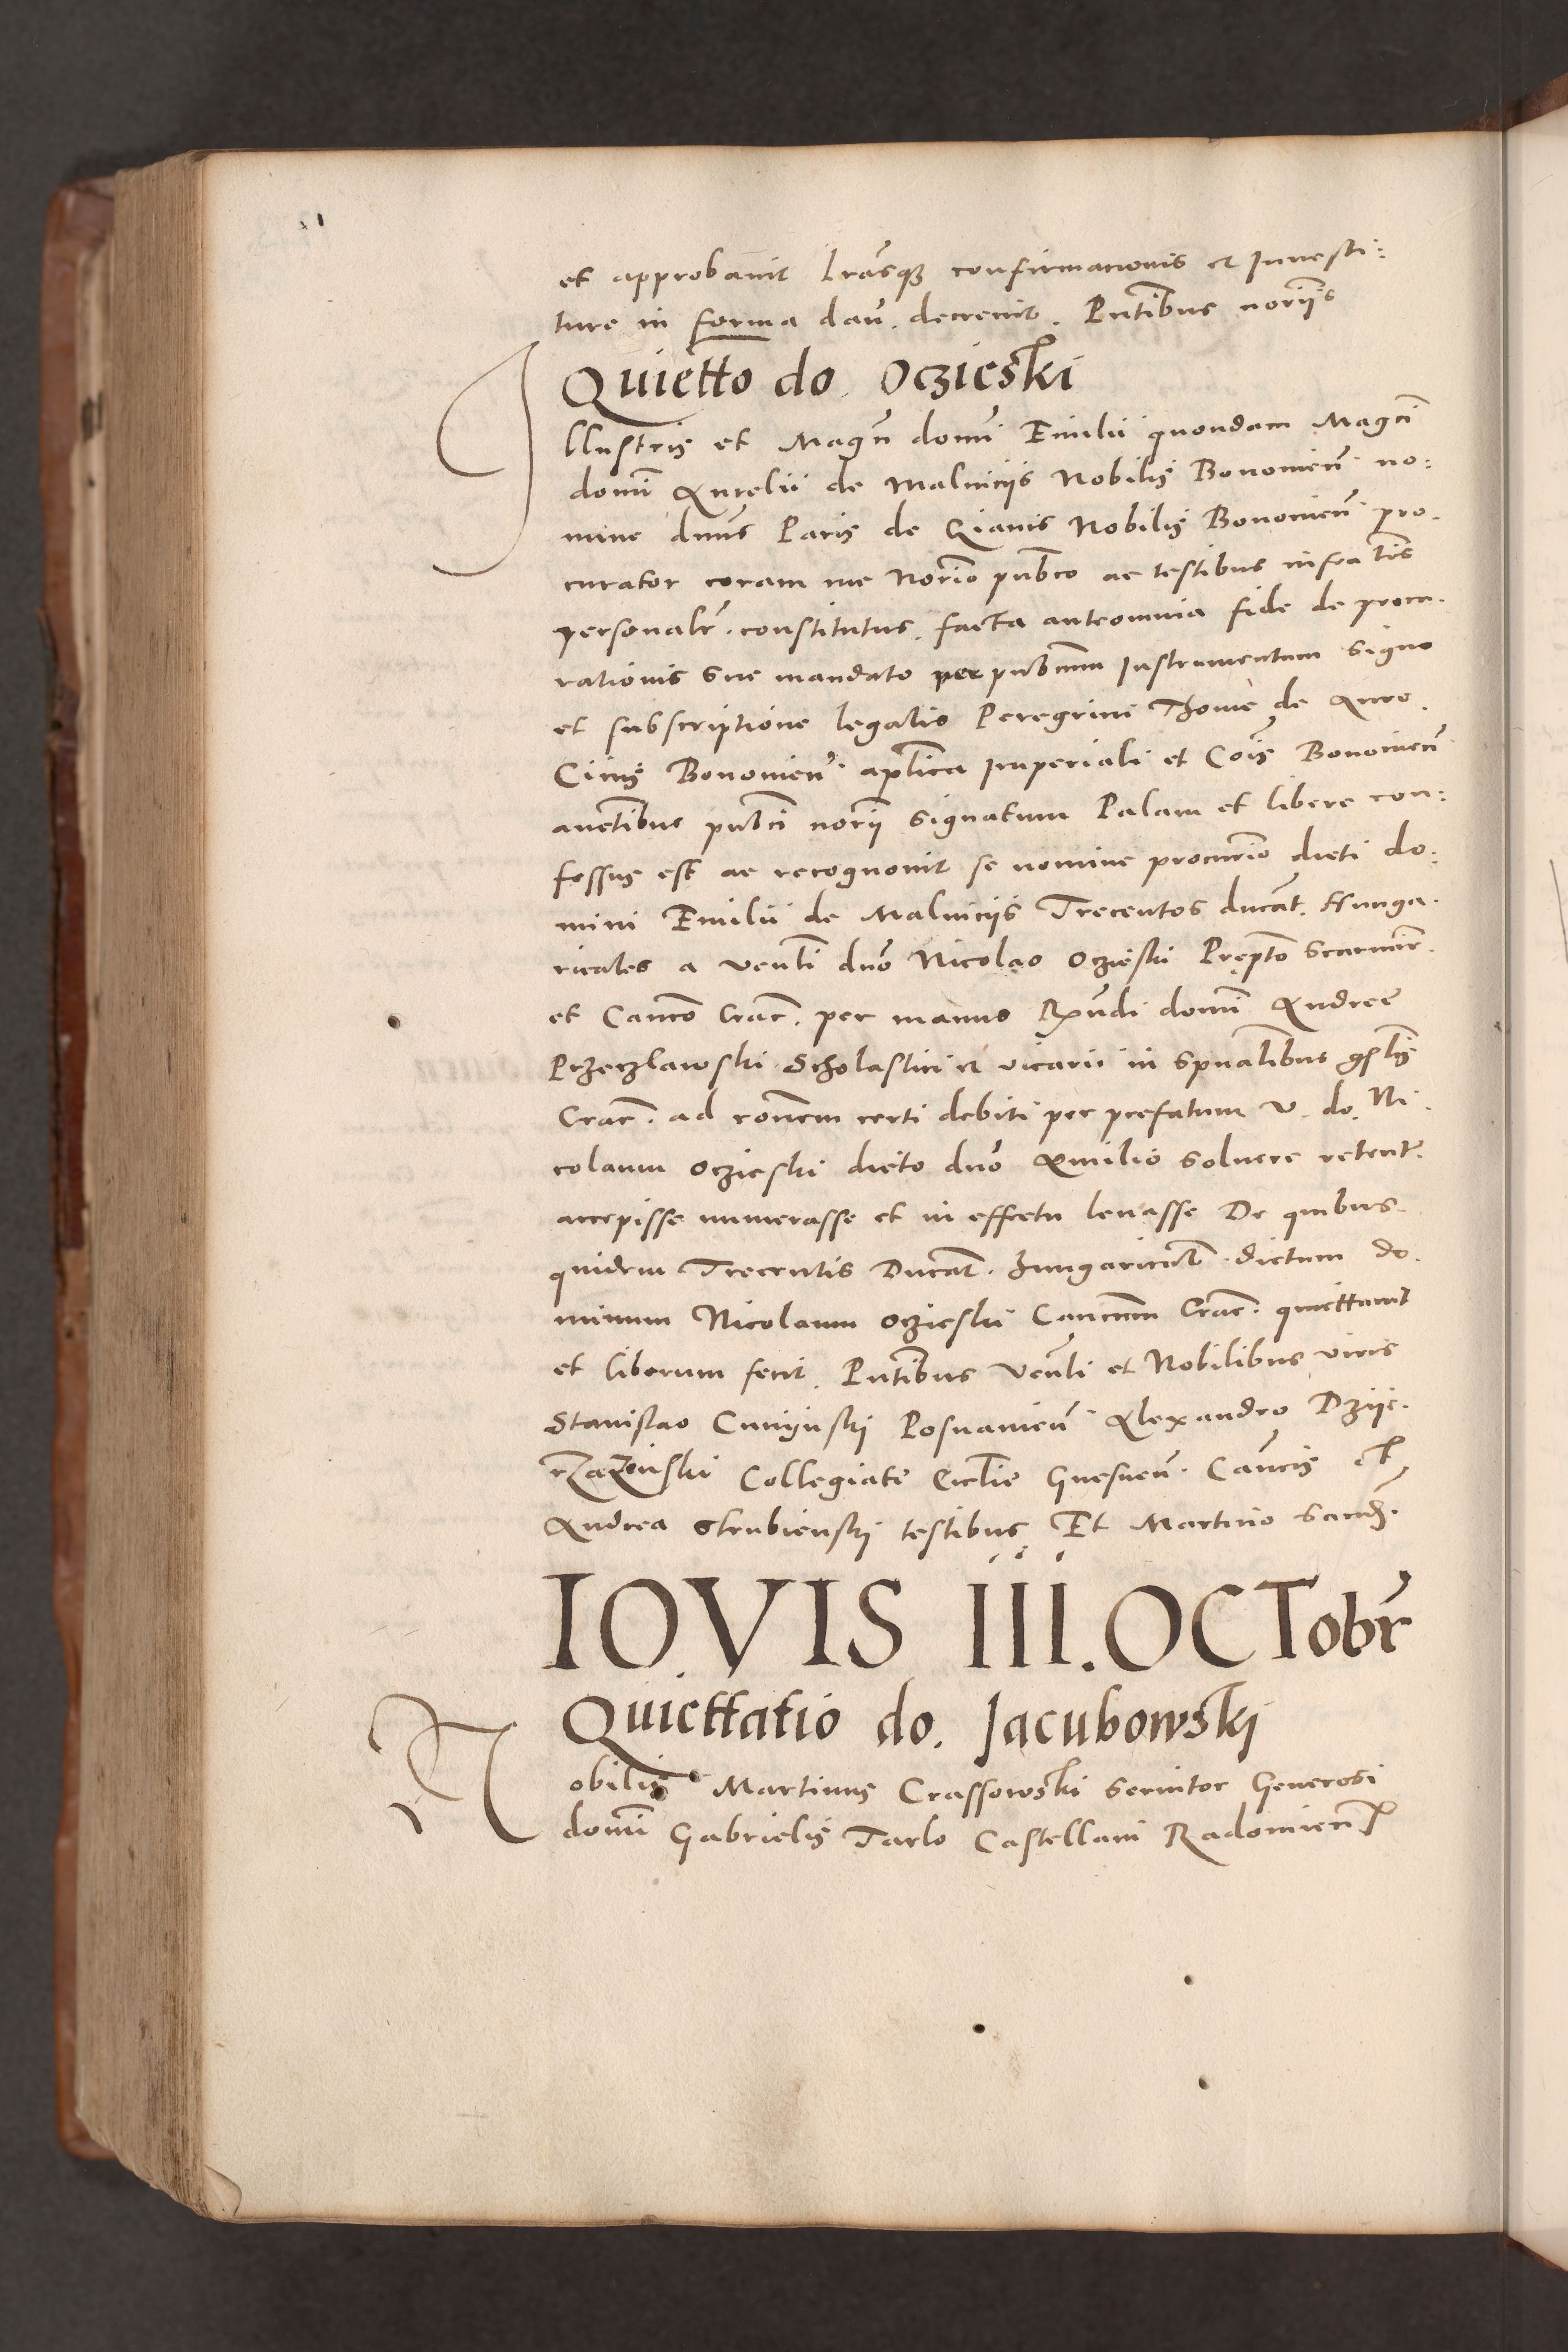 et approbavit lrasq confirmationis et Investi:
ture in forma dari decrevit. Pntibus noriis
Quietto do. Oczieski
Illustris et Magn domi Emilii quondam Magci
domi Aurelii de Malviciis Nobilis Bononien no:
mine dnus Paris de Nobilis Bononien pro.
curator coram me Norio pubco ac testibus infra tis
personalr. constitutus. facta anteomnia fide de procu.
rationis sue mandato per pubcum Instrumentum signo
et subscriptione legalis Peregrini Thome de Auro.
Civis Bononien. aplica Imperiali et Cois Bononien
auctibus pubci norii signatum Palam et libere con:
fessus est ac recognovit se nomine procurio dicti do:
mini Emilii de Malviciis Trecentos ducat. Hunga.
ricales a venli dno Nicolao Oczieski Prepto Scarmir.
et Canco Crac. per manus Rndi domi Andree
Przeczlawski Scholastici et vicarii in spualibus gnlis
Crac. ad ronem certi debiti per prefatum v. do. Ni.
colaum Oczieski dicto dno Emilio solvere retent.
accepisse numerasse et in effectu levasse De quibus.
quidem Trecentis Ducat. Hungarical. dictum do.
minum Nicolaum Oczieski Cancum Crac. quiettavit
et liberum fecit. Pntibus Venli et Nobilibus viris
Stanislao Posnanien Alexandro Dzije.
Collegiate Ecclie Gnesnen. Cancis et
Andrea Strubienskj testibus Et Martino
IOVIS III. OCTobr
Quiettatio do. Jacubowskj
Nobilis Martinus Crassowski servitor Generosi
domi Gabrielis Tarlo Castellani Radomien